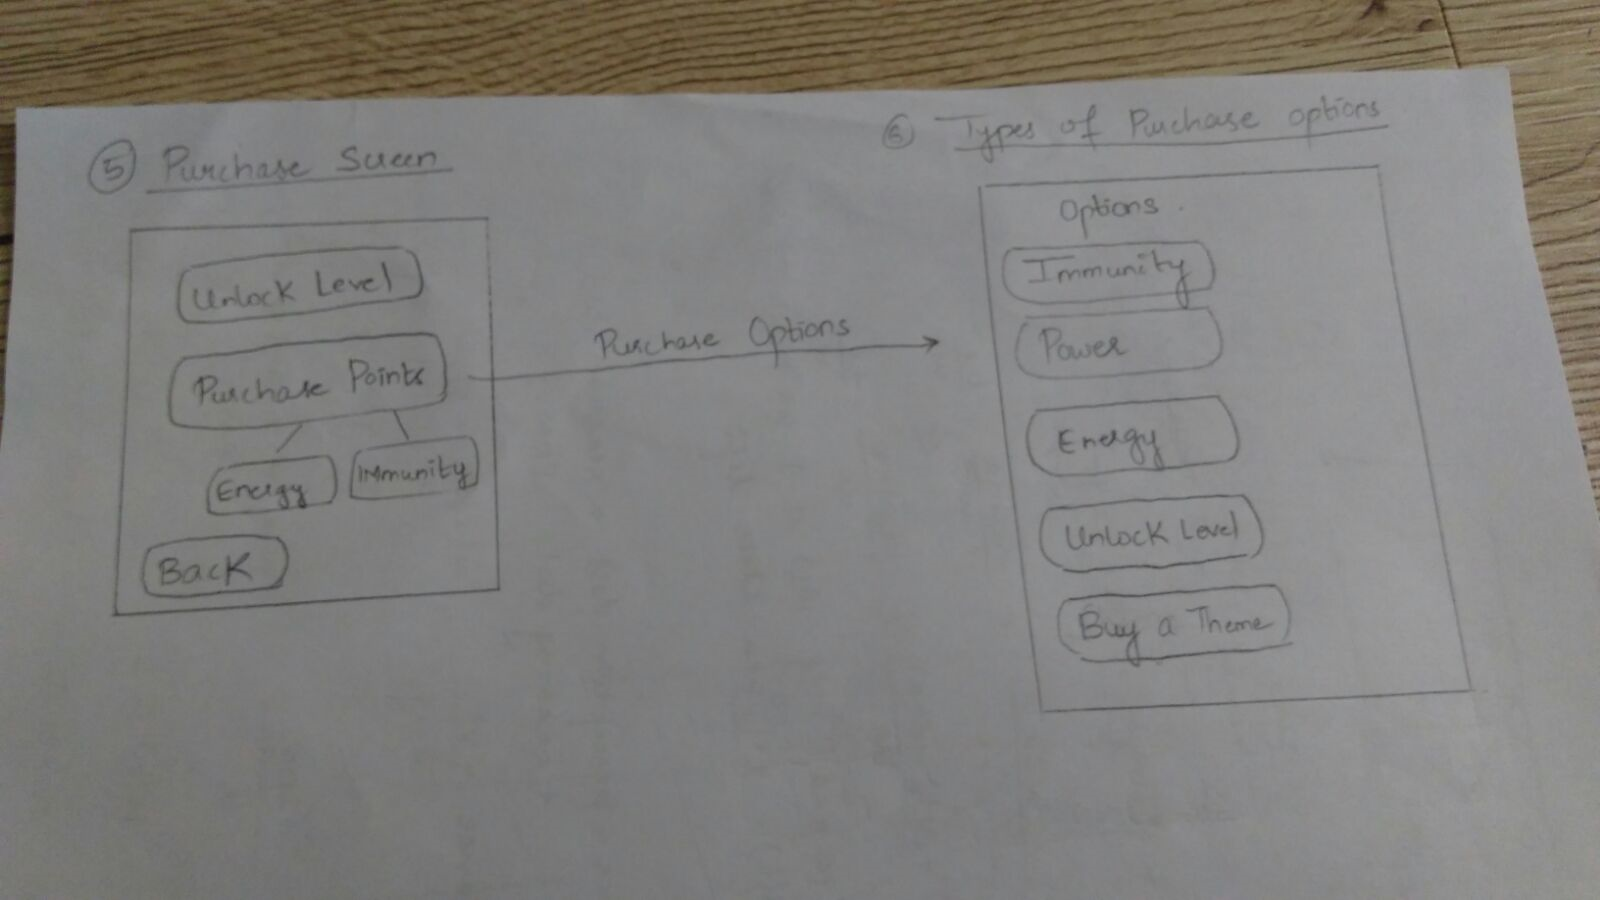 5 Purchase Screen
Unlock Level
Purchase Points
Energy
Immunity
Back
Purchase Options
6 Types of Purchase options
Options
Immunity
Power
Energy
Unlock Level
Buy a Theme